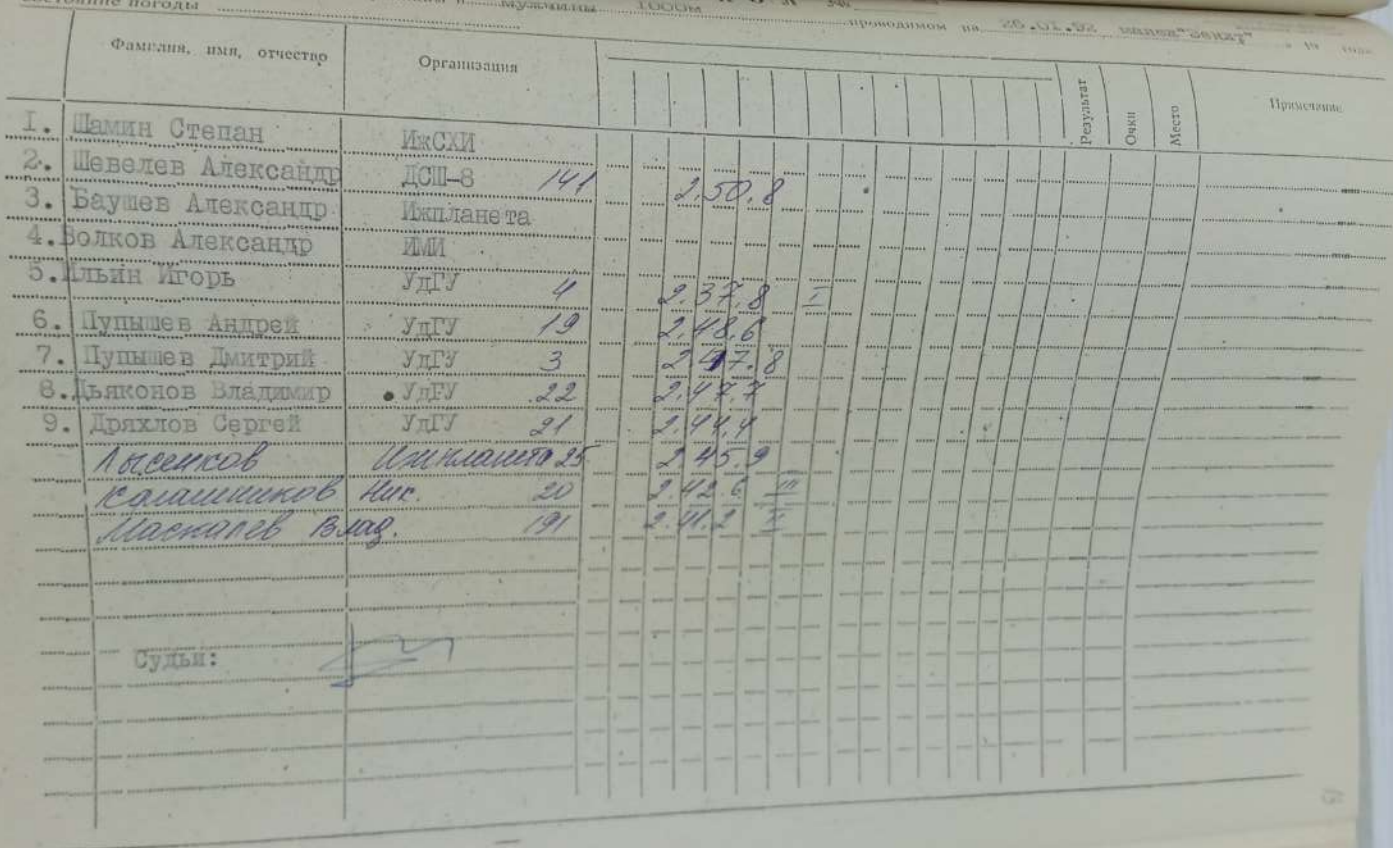 состояние погоды мужчины 1000м проводимом на 26.10.92 манеж "Зенит" 19 года
Фамилия, имя, отчество Организация Результат Очки Место Примечание
I. Шамин Степан ИжСХИ
2. Шевелев Александр ДСШ-8 141 2.50.8
3. Баушев Александр Ижпланета
4. Волков Александр ИМИ
5. Ильин Игорь УдГУ 4 2.37.8 I
6. Пупышев Андрей УдГУ 19 2.48.6
7. Пупышев Дмитрий УдГУ 3 2.47.8
8. Дьяконов Владимир УдГУ 22 2.47.7
9. Дряхлов Сергей УдГУ 21 2.44.4
Лысенков Ижпланета 25 2.45.9
Калашников Ник. 20 2.42.6 III
Маскалев Влад. 191 2.41.2 II
Судьи: